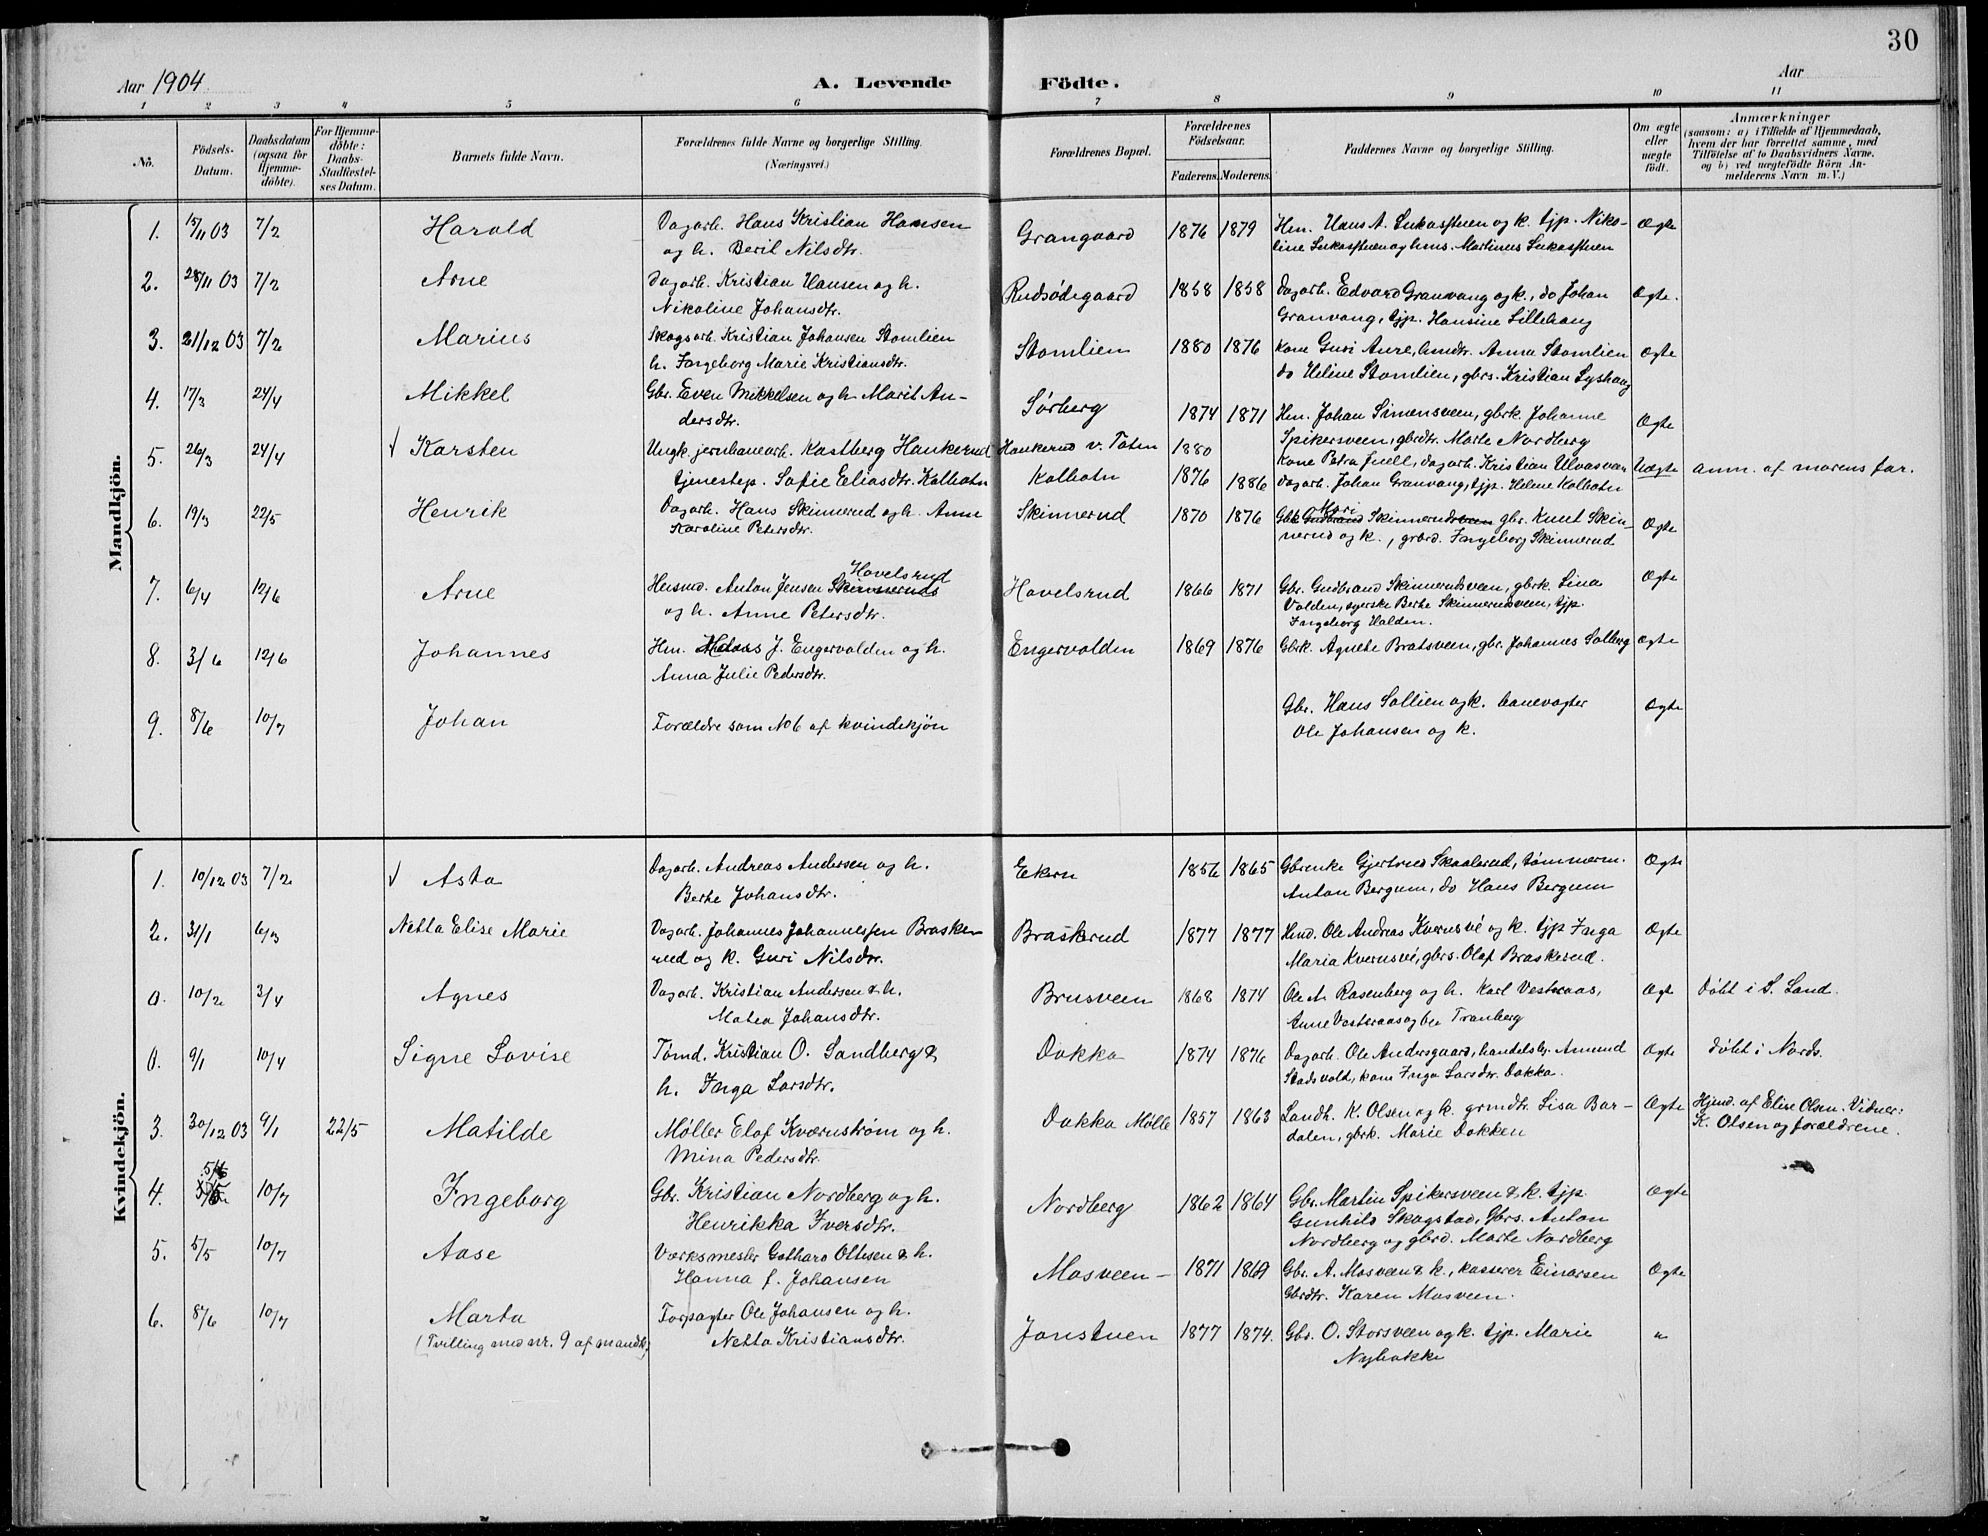 30
Aar 1904
A. Levende Födte.
Aar
1 2 3 4 5 6 7 8 9 10 11
No.
Födsels-Datum.
Daabsdatum (ogsaa for Hjemme-döbte).
For Hjemme-döbte: Daabs-Stadfæstel-ses Datum.
Barnets fulde Navn.
Forældrenes fulde Navne og borgerlige Stilling. (Næringsvei.)
Forældrenes Bopæl.
Forældrenes Födselsaar.
Faderens. Moderens.
Faddernes Navne og borgerlige Stilling.
Om ægte eller uægte födt.
Anmærkninger (saasom: a) i Tilfælde af Hjemmedaab, hvem der har forrettet samme, med Tilföielse af to Daabsvidners Navne, og b) ved uægtefödte Börn Anmelderens Navn m. V.)
Mandkjön.
1. 15/11 03 7/2 Harald Dagarb. Hans Kristian Hansen Grangaard 1876 1879 Hm. Hans A. Lukasstuen og k. tjp. Niko- Ægte
og h. Beril Nilsdtr. line Lukasstuen og hms. Martinus Lukasstuen
2. 28/11 03 7/2 Arne Dagarb. Kristian Hansen og h. Rudsødegaard 1858 1858 Dagarb. Edvard Granvang og k., do Johan Ægte.
Nikoline Johansdtr. Granvang, tjp. Hansine Lillehaug
3. 21/12 03 7/2 Marius Skogsarb. Kristian Johansen Stomlien Stomlien 1880 1876 Kone Guri Aure, hmdtr. Anna Stomlien Ægte
h. Ingeborg Marie Kristiansdtr. do Helene Stomlien, gbrs. Kristian Lyshaug
4. 17/3 24/4 Mikkel Gbr. Even Mikkelsen og h. Marit An- Sørberg 1874 1871 Hm. Johan Simensveen, gbrk. Johanne Ægte
dersdtr. Spikersveen, gbrdtr. Marte Nordberg
5. 26/3 24/4 Karsten Ungk. jernbanearb. Kastberg Hankerud Hankerud v. Toten 1880 Kone Petra Juell, dagarb. Kristian Ulvasveen Uægte anm. af morens far.
tjenestep. Sofie Eliasdtr. Kolbotn Kolbotn 1876 1886 dagarb. Johan Granvang, tjp. Helene Kolbotn
6. 19/3 22/5 Henrik Dagarb. Hans Skinnerud og h. Anne Skinnerud 1870 1876 Gbk Gudbrand Mari Skinnerudsveen gbr. Knut Skin- Ægte
Karoline Petersdtr. nerud og k., gbrd. Ingeborg Skinnerud
7. 6/4 12/6 Arne Husmd. Anton Jensen Skinneruds Hovelsrud Hovelsrud 1866 1871 Gbr. Gudbrand Skinnerudsveen, gbrk. Lina Ægte
og h. Anne Petersdtr. Volden, syerske Berte Skinnerudsveen, tjp.
Ingeborg Volden.
8. 3/6 12/6 Johannes Hm. J. Engervolden og h. Engervolden 1869 1876 Gbrk. Agnete Bratsveen, gbr. Johannes Solberg Ægte
Anna Julie Pedersdtr.
9. 8/6 10/7 Johan Forældre som No 6 af kvindekjön Gbr. Hans Sollien og k. banevogter Ægte
Ole Johansen og k.
Kvindekjön.
1. 10/12 03 7/2 Asta Dagarb. Andreas Andersen og h. Ekern 1856 1865 Gbrenke Gjertrud Skaalerud, tømmerm. Ægte
Berte Johansdtr. Anton Bergum, do Hans Bergum
2. 31/1 6/3 Netta Elise Marie Dagarb. Johannes Johannessen Braske- Braskrud 1877 1877 Hmd. Ole Andreas Kvernsvé og k. tjp Inga Ægte
rud og k. Guri Nilsdtr. Maria Kvernsvé, gbrs. Olaf Braskerud.
0. 10/2 3/4 Agnes Dagarb. Kristian Andersen & h. Brusveen 1868 1874 Ole A. Rosenberg og h. Karl Vesteraas, Ægt Döbt i S. Land.
Matea Johansdtr. Anne Vesteraas og Tranberg
0. 9/1 10/4 Signe Lovise Tømd. Kristian O. Sandberg & Dokka 1874 1876 Dagarb. Ole Andersgaard, handelsbr. Amund Ægte döbt i Nords.
h. Inga Larsdtr. Stadsvolt, kone Inga Larsdtr. Dokka.
3. 30/12 03 9/1 22/5 Matilde Møller Elof Kværnstrøm og h. Dokka Mølle 1857 1863 Landh. K. Olsen og k. grmdtr. Lisa Bar- Ægte Hjmd. af Elise Olsen. Vidner:
Mina Pedersdtr. dalen, gbrk. Marie Dokken K. Olsen og forældrene.
4. 5/5 10/7 Ingeborg Gbr. Kristian Nordberg og h. Nordberg 1862 1864 Gbr. Martin Spikersveen & k. tjp. Ægte
Henrikka Iversdtr. Gunhild Skogstad, Gbrs. Anton
Nordberg og gbrd. Marte Nordberg
5. 5/5 10/7 Aase Værksmester Gothard Oltesen & h. Mosveen 1871 1869 Gbr. A. Mosveen & k., kasserer Einarsen Ægte
Hanna f. Johansen Gbrdtr. Karen Mosveen.
6. 8/6 10/7 Marta Forpagter Ole Johansen og h. Jonstuen 1877 1874. Gbr. O. Storsveen og k. tjp. Marie "
(Tvilling med nr. 9 af mandk) Netta Kristiansdtr. Nybakke